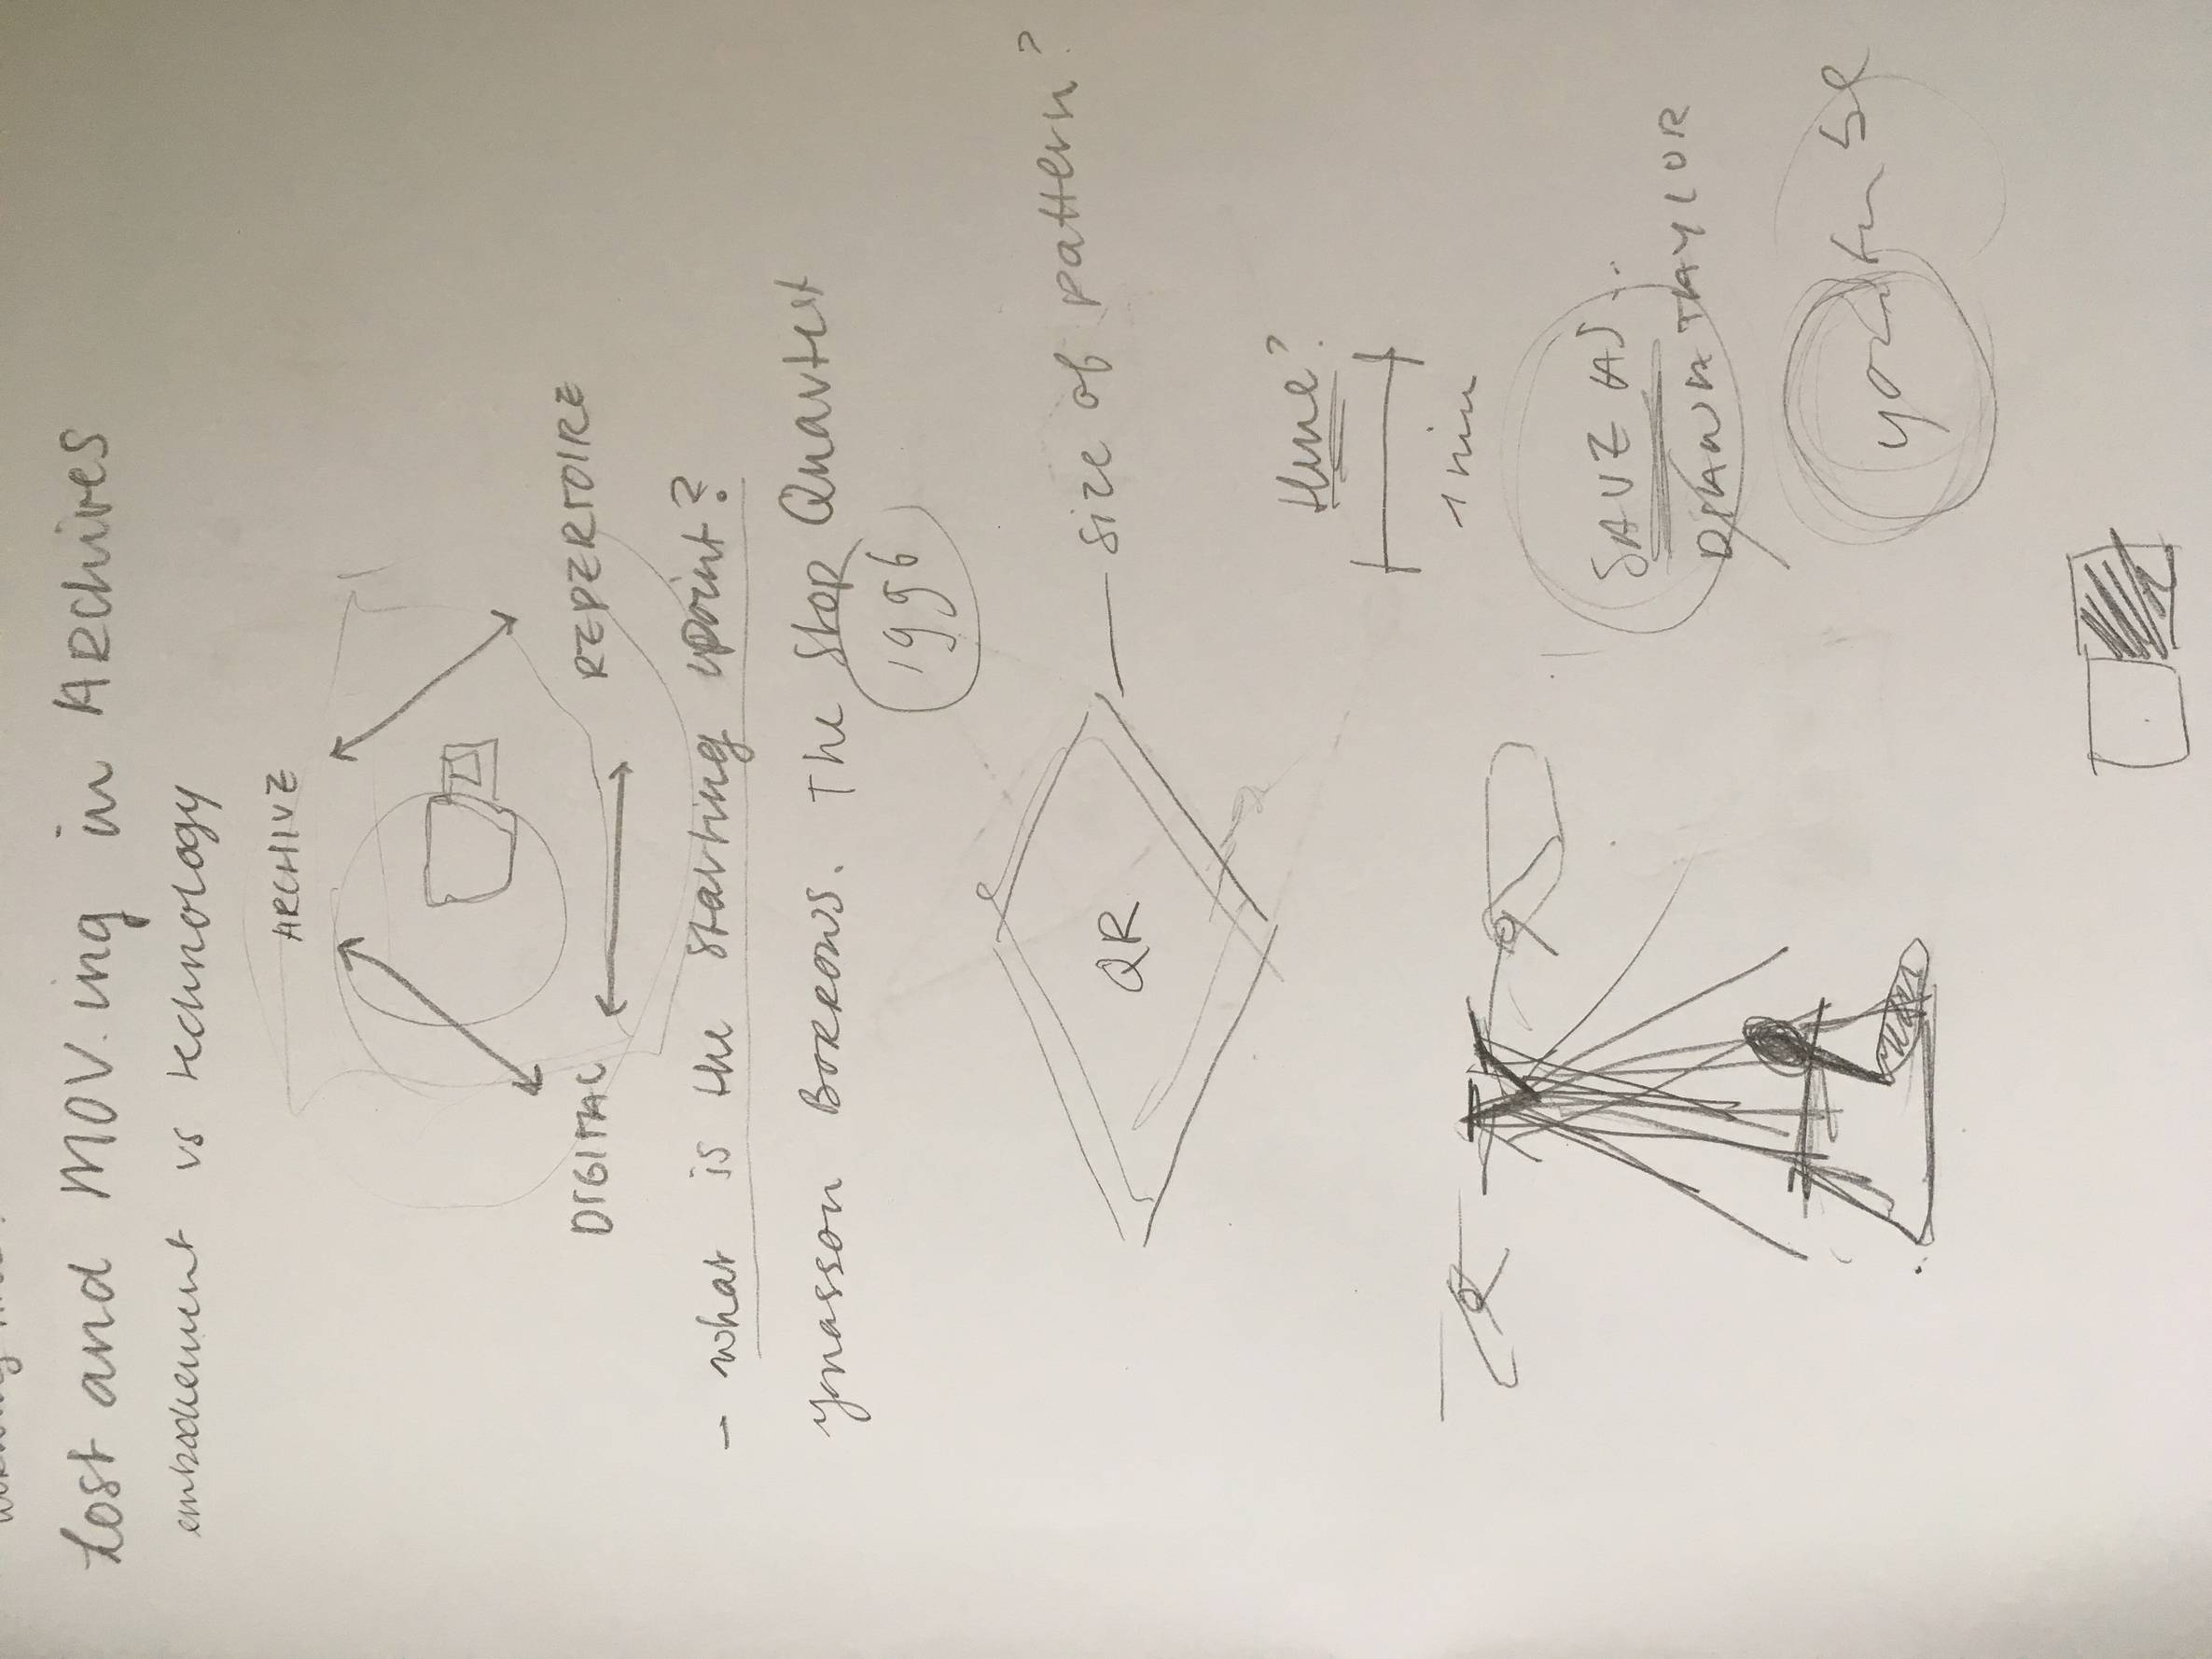 Lost and MOV.ing in ARchives
embodiement vs technology
ARCHIVE
DIGITAL
REPERTOIRE
- what is the starting point?
ynasson Borrows. The Step Quartet
1996
QR
size of pattern?
time?
1 min
SAVE AS
DIANA TAYLOR